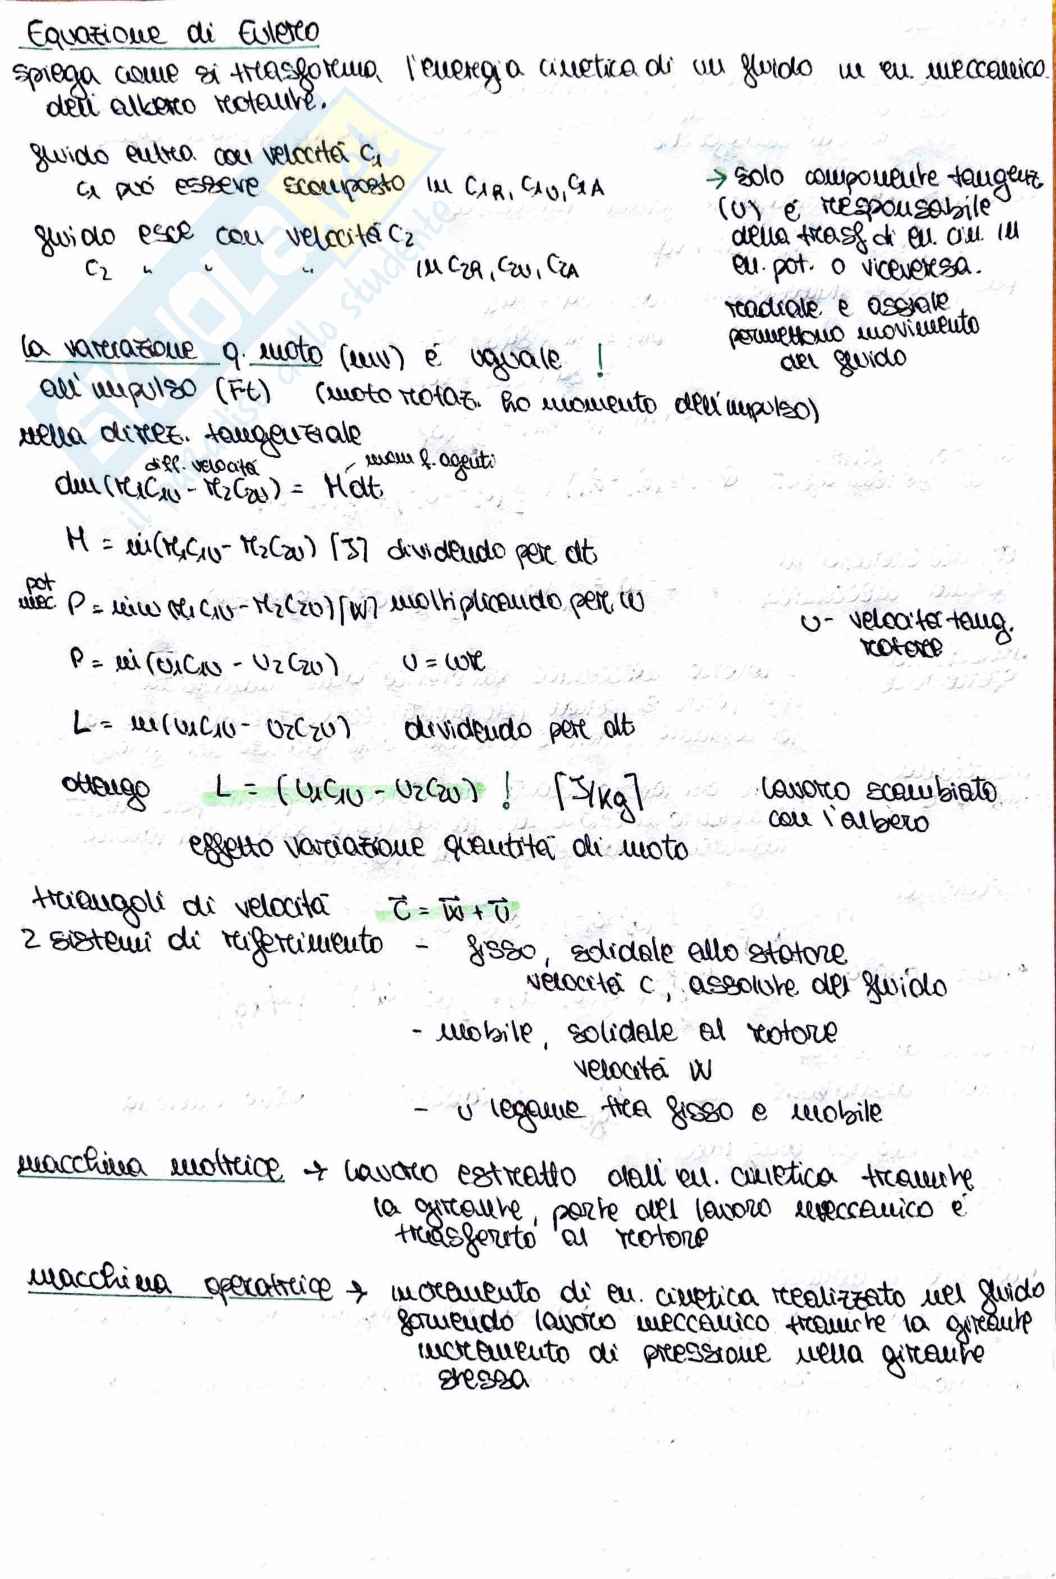 Equazione di Eulero
spiega come si trasforma l'energia cinetica di un fluido in en. meccanico
dell'albero rotante.
fluido entra con velocità C1
C1 può essere scomposto in C1R, C1U, C1A
fluido esce con velocità C2
C2 " " " in C2R, C2U, C2A
→ solo componente tangenz.
(U) è responsabile
della trasf di en. cin. in
en. pot. o viceversa.
radiale e assiale
permettono movimento
del fluido
la variazione q. moto (mv) è uguale !
all'impulso (Ft) (moto rotaz. ho momento dell'impulso)
nella direz. tangenziale
diff. velocità mom f. agenti
dm(r1C1U - r2C2U) = Mdt
M = ṁ(r1C1U - r2C2U) [J] dividendo per dt
pot
mec P = ṁω(r1C1U - r2C2U) [W] moltiplicando per ω
P = ṁ(U1C1U - U2C2U) U = ωr
U - velocità tang.
rotore
L = m(U1C1U - U2C2U) dividendo per dt
ottengo L = (U1C1U - U2C2U) ! [J/kg]
lavoro scambiato
con l'albero
effetto variazione quantità di moto
triangoli di velocità C⃗ = W⃗ + U⃗
2 sistemi di riferimento - fisso, solidale allo statore
velocità C, assolute del fluido
- mobile, solidale al rotore
velocità W
- U legame tra fisso e mobile
macchina motrice → lavoro estratto dall'en. cinetica tramite
la girante, parte del lavoro meccanico è
trasferito al rotore
macchina operatrice → incremento di en. cinetica realizzato nel fluido
fornendo lavoro meccanico tramite la girante
incremento di pressione nella girante
stessa